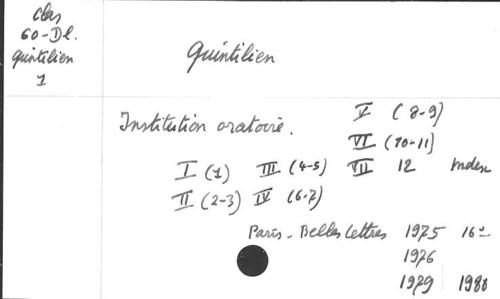 clas
60-Dl.
quintilien
1
Quintilien
Institution oratoire.
V (8-9)
VI (10-11)
I (1) III (4-5) VII 12 Index
II (2-3) IV (6-7)
Paris - Belles Lettres 1975 16°
1976
1979 1980